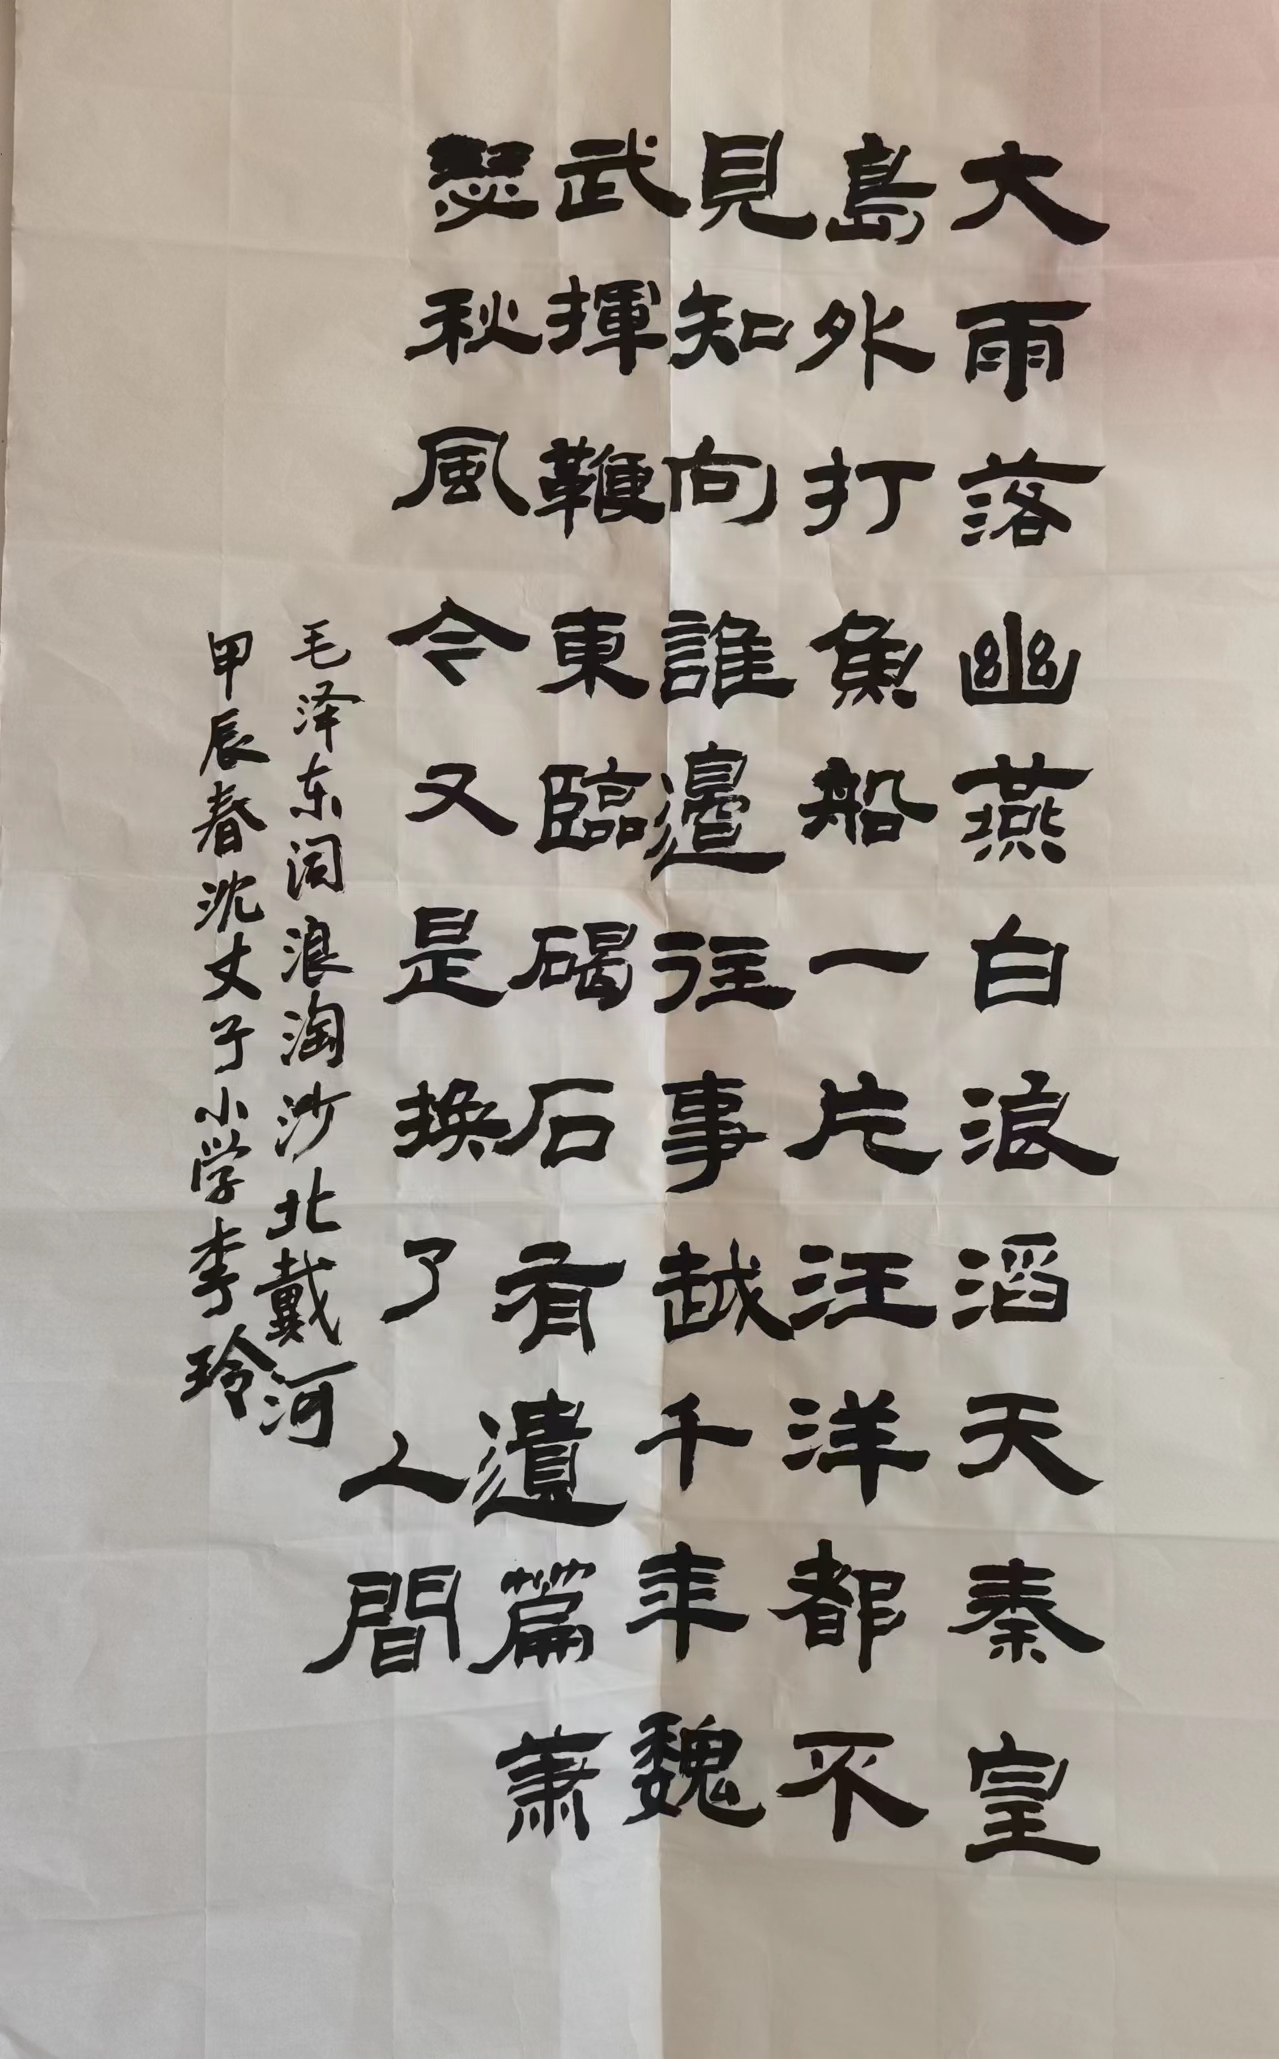 大雨落幽燕白浪滔天秦皇
島外打魚船一片汪洋都不
見知向誰邊往事越千年魏
武揮鞭東臨碣石有遺篇蕭
瑟秋風令又是換了人間
毛泽东词浪淘沙北戴河
甲辰春沈丈子小学李玲